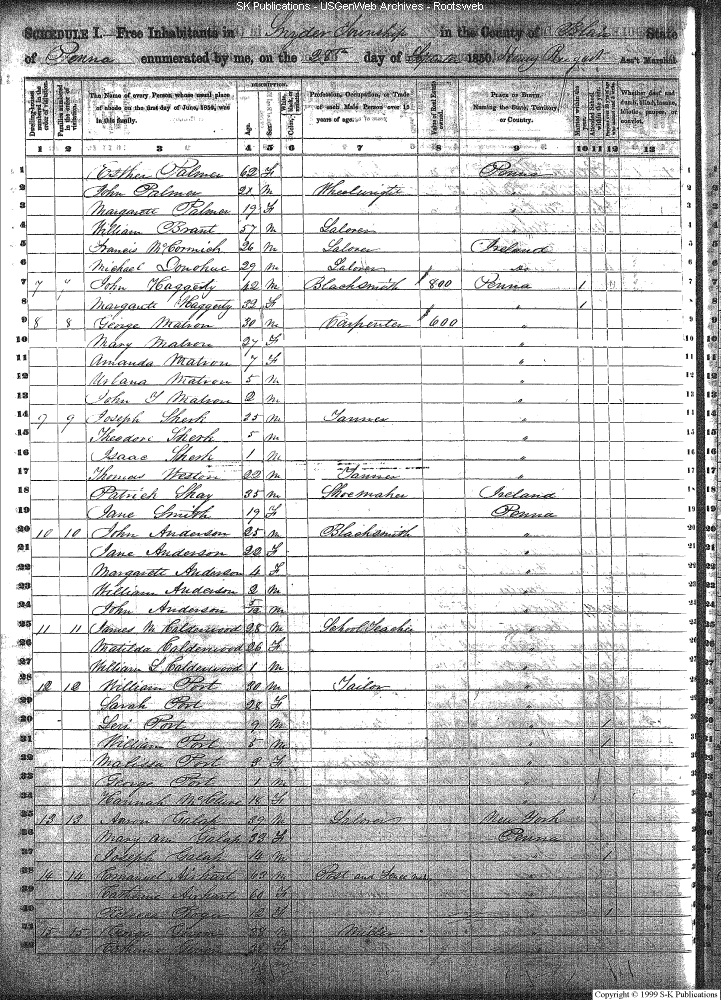 SK Publications - USGenWeb Archives - Rootsweb
SCHEDULE I.—Free Inhabitants in Snider Township in the County of Blair State
of Penna enumerated by me, on the 28th day of Septr 1850. Ass't Marshal.
Dwelling-houses numbered in the order of visitation. Families numbered in the order of visitation. The Name of every Person whose usual place of abode on the first day of June, 1850, was in this family. DESCRIPTION. Age. Sex. Color. Profession, Occupation, or Trade of each Male Person over 15 years of age. Value of Real Estate owned. PLACE OF BIRTH. Naming the State, Territory, or Country. Married within the year. Whether deaf and dumb, blind, insane, idiotic, pauper, or convict.
1 2 3 4 5 6 7 8 9 10 11 12 13
1 Esther Palmer 62 F Penna 1
2 John Palmer 21 M Wheelwright " 2
3 Margarett Palmer 19 F " 3
4 William Brant 57 M Laborer " 4
5 Francis McCormick 26 M Laborer Ireland 5
6 Michael Donohue 29 M Laborer do 6
7 7 7 John Haggerty 42 M Blacksmith $800 Penna 1 7
8 Margarett Haggerty 32 F " 1 8
9 8 8 George Matron 30 M Carpenter $600 " 9
10 Mary Matron 27 F " 10
11 Amanda Matron 7 F " 11
12 Urbana Matron 5 M " 12
13 John T Matron 2 M " 13
14 9 9 Joseph Sherk 25 M Tanner " 14
15 Theodore Sherk 5 M " 15
16 Isaac Sherk 1 M " 16
17 Thomas Weston 22 M Tanner " 17
18 Patrick Shay 35 M Shoemaker Ireland 18
19 Jane Smith 19 F Penna 19
20 10 10 John Anderson 25 M Blacksmith " 20
21 Jane Anderson 22 F " 21
22 Margarett Anderson 4 F " 22
23 William Anderson 2 M " 23
24 John Anderson 5/12 M " 24
25 11 11 James M Calderwood 28 M School Teacher " 25
26 Matilda Calderwood 26 F " 26
27 William L Calderwood 1 M " 27
28 12 12 William Port 30 M Tailor " 28
29 Sarah Port 28 F " 29
30 Levi Port 9 M " 1 30
31 William Port 5 M " 1 31
32 Malissa Port 3 F " 32
33 George Port 1 M " 33
34 Hannah McClure 18 F "
35 13 13 Aaron Galap 39 M Laborer New York
36 Mary Ann Galap 33 F Penna
37 Joseph Galap 14 M " 1
38 14 14 Emanuel Airhart 63 M Post and Fence
39 Catharine Airhart 60 F
40 12 F 1
41 15 15 George 28 M Miller
42 F
Copyright © 1999 S-K Publications